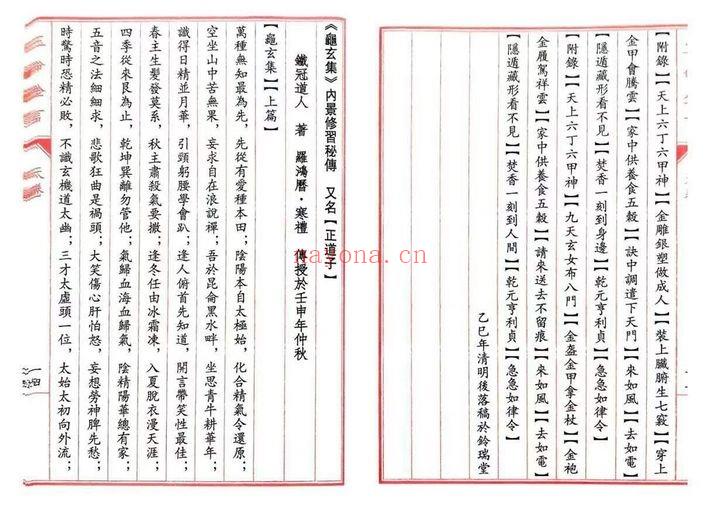 【附錄】【天上六丁六甲神】【金雕銀塑做成人】【裝上臟腑生七竅】【穿上
金甲會騰雲】【家中供養食五穀】【訣中調遣下天門】【來如風】【去如電】
【隱遁藏形看不見】【焚香一刻到身邊】【乾元亨利貞】【急急如律令】
【附錄】【天上六丁六甲神】【九天玄女布八門】【金盔金甲拿金杖】【金袍
金履駕祥雲】【家中供養食五穀】【請來送去不留痕】【來如風】【去如電】
【隱遁藏形看不見】【焚香一刻到人間】【乾元亨利貞】【急急如律令】
乙巳年清明後落稿於鈴瑞堂
《龜玄集》內景修習秘傳 又名【正道子】
鐵冠道人 著 羅鴻曆·寒禮 傳授於壬申年仲秋
【龜玄集】【上篇】
萬種無知最為先，先從有愛種本田；陰陽本自太極始，化合精氣令還原；
空坐山中苦無果，妄求自在浪說禪；吾於昆侖黑水畔，坐思青牛耕華年；
識得日精並月華，引頸躬腰學會趴；逢人俯首先知道，開言帶笑性最佳；
春主生髮發莫系，秋主肅殺氣要撒；逢冬任由冰霜凍，入夏脫衣漫天涯；
四季從來艮為止，乾坤巽離勿管他；氣歸血海血歸氣，陰精陽華總有家；
五音之法細細求，悲歌狂曲是禍頭；大笑傷心肝怕怒，妄想勞神脾先愁；
時驚時恐精必敗，不識玄機道太幽；三才太虛頭一位，太始太初向外流；
nayona.cn